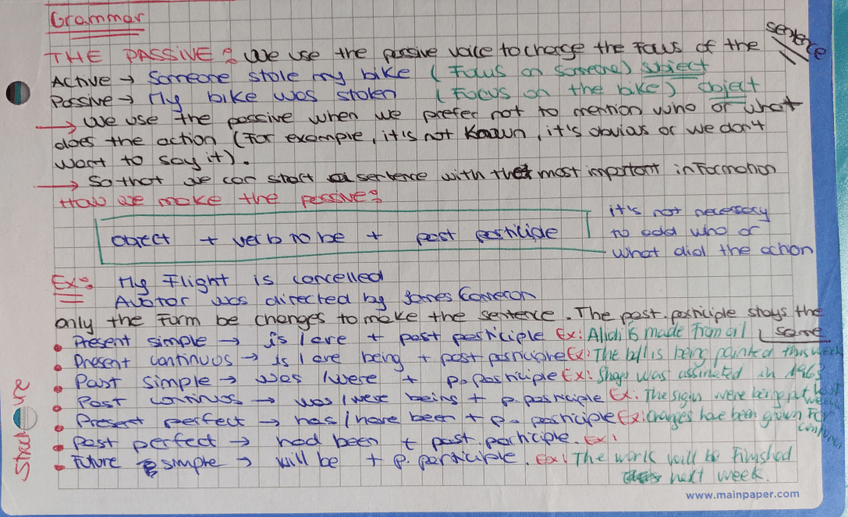 Grammar
THE PASSIVE: We use the passive voice to change the focus of the sentence
Active → Someone stole my bike (Focus on someone) subject
Passive → My bike was stolen (Focus on the bike) object
→ We use the passive when we prefer not to mention who or what
does the action (for example, it's not known, it's obvius or we don't
want to say it).
→ So that we can start a sentence with the most important information
How we make the passive:
object + verb to be + past participle
it's not necessary
to add who or
what did the action
Ex: My Flight is cancelled
Avatar was directed by James Cameron
only the form be changes to make the sentence. The past participle stays the same
• Present simple → is / are + past participle Ex: is made from oil
• Present continuos → is / are being + past participle Ex: The is being painted this week
• Past simple → was / were + p. participle Ex: was in 1963
• Past continuos → was / were being + p. participle Ex: The signs were being put last week
• Present perfect → has / have been + p. participle Ex: have been grown for
• Past perfect → had been + past participle. Ex:
• Future simple → will be + p. participle. Ex: The work will be finished
next week.
Structure
www.mainpaper.com